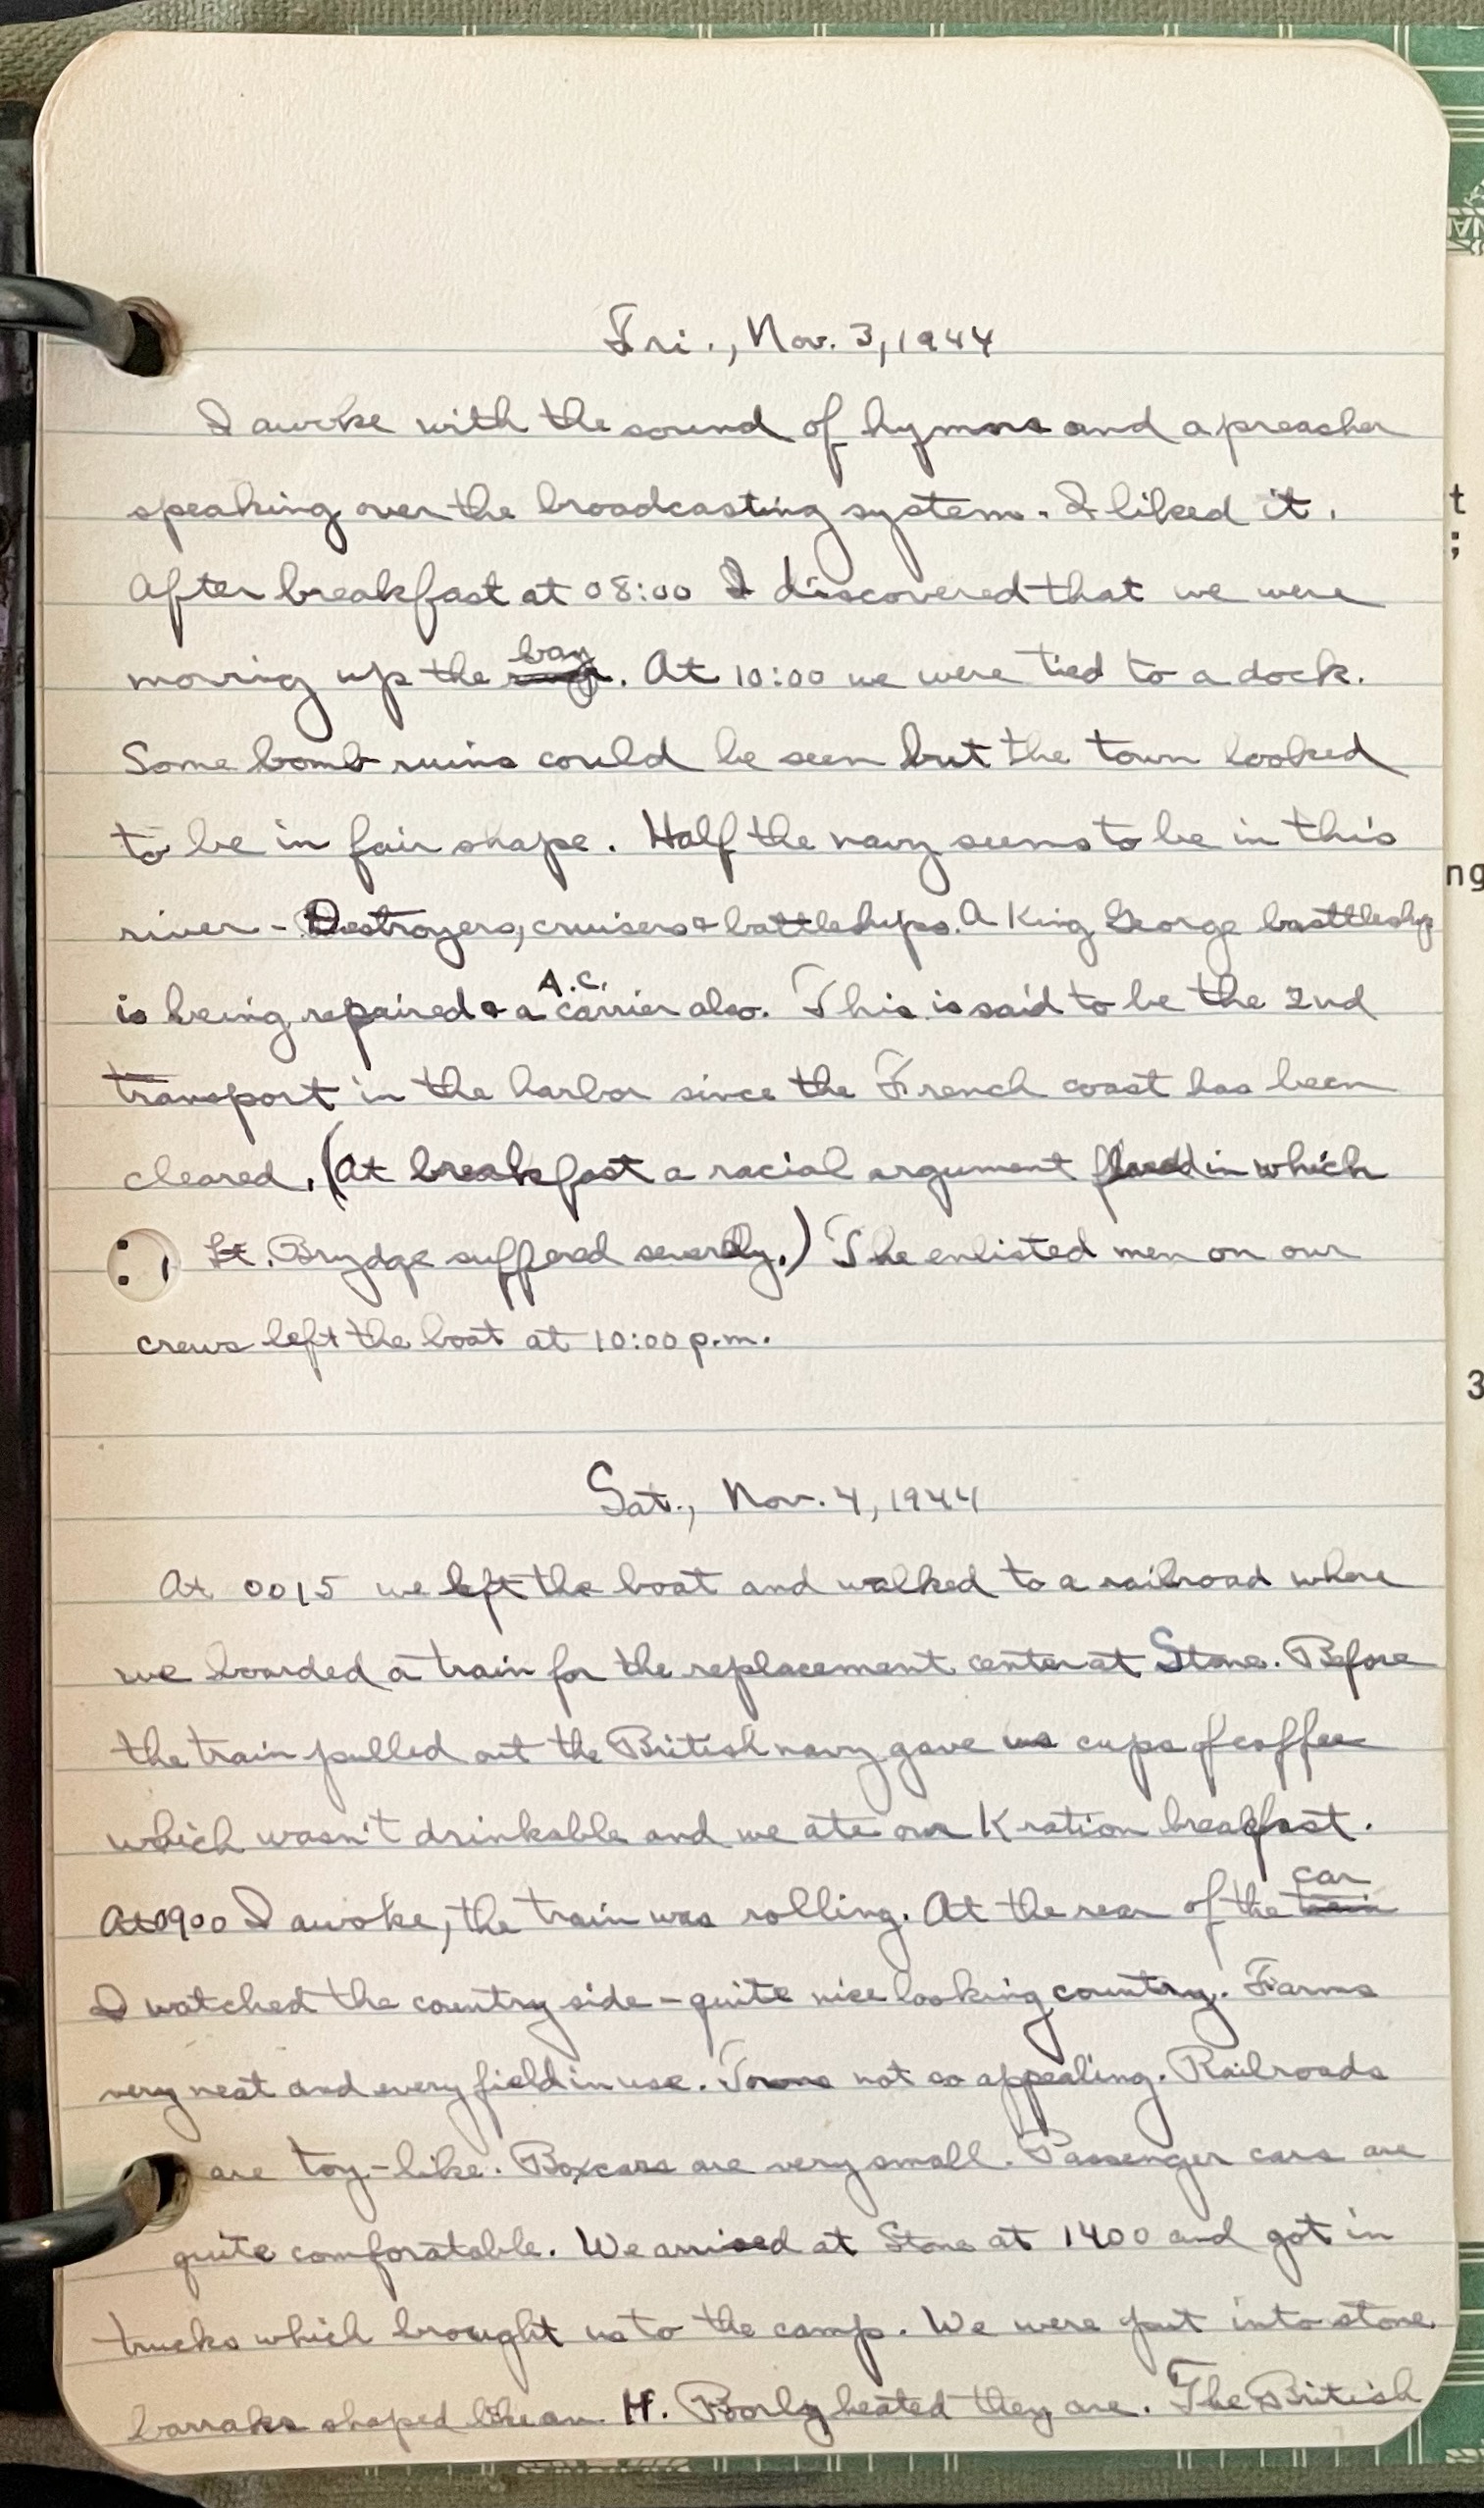 Fri., Nov. 3, 1944
I awoke with the sound of hymns and a preacher
speaking over the broadcasting system. I liked it.
After breakfast at 08:00 I discovered that we were
moving up the bay. At 10:00 we were tied to a dock.
Some bomb ruins could be seen but the town looked
to be in fair shape. Half the navy seems to be in this
river - Destroyers, cruisers & battleships. A King George basttleship
is being repaired & a A.C. carrier also. This is said to be the 2nd
transport in the harbor since the French coast has been
cleared. (At breakfast a racial argument in which
Lt. Brydge suffered severely.) The enlisted men on our
crews left the boat at 10:00 p.m.
Sat., Nov. 4, 1944
At 0015 we left the boat and walked to a railroad where
we boarded a train for the replacement center at Stone. Before
the train pulled out the British navy gave us cups of coffee
which wasn't drinkable and we ate our K ration breakfast.
At 0900 I awoke, the train was rolling. At the rear of the train car
I watched the country side - quite nice looking country. Farms
very neat and every field in use. Towns not so appealing. Railroads
are toy-like. Boxcars are very small. Passenger cars are
quite comforatable. We arrived at Stone at 1400 and got in
trucks which brought us to the camp. We were put into stone
barraks shaped like an H. Poorly heated they are. The British
t
;
ng
3